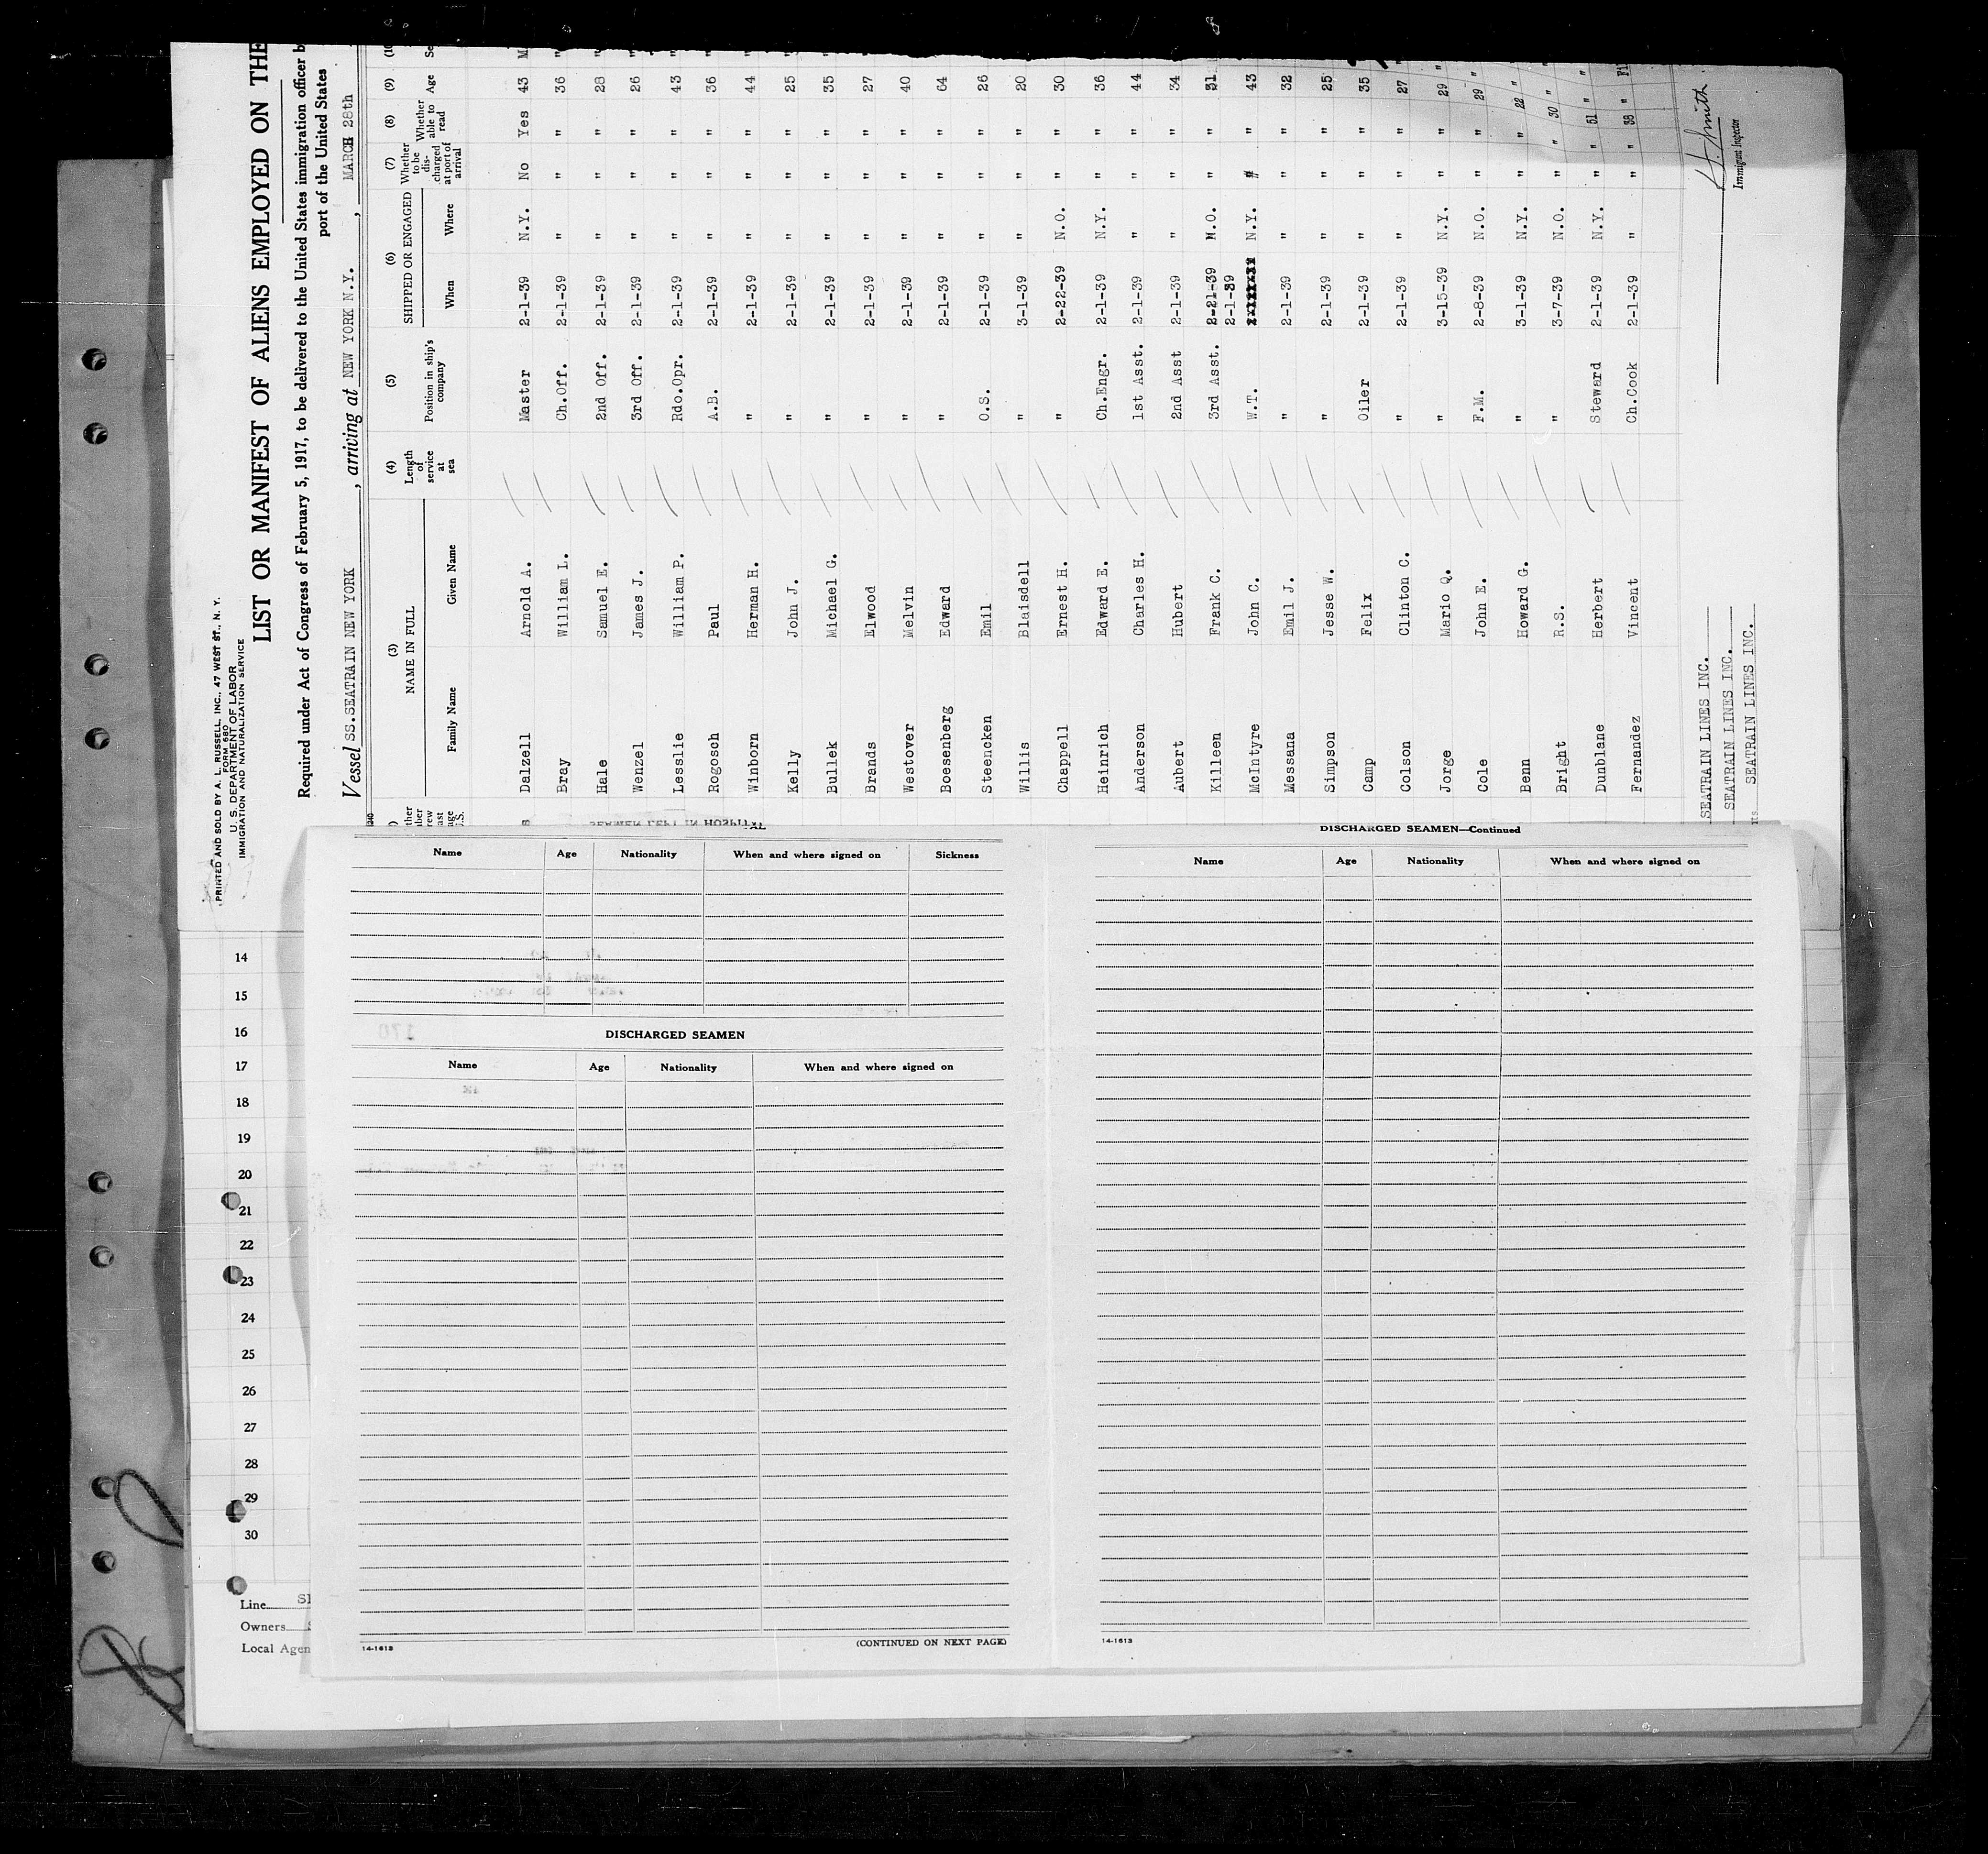 PRINTED AND SOLD BY A. L. RUSSELL, INC., 47 WEST ST., N. Y.
FORM 680
U. S. DEPARTMENT OF LABOR
IMMIGRATION AND NATURALIZATION SERVICE
LIST OR MANIFEST OF ALIENS EMPLOYED ON THE
Required under Act of Congress of February 5, 1917, to be delivered to the United States immigration officer b
port of the United States
Vessel SS.SEATRAIN NEW YORK, arriving at NEW YORK N.Y., MARCH 28th
(3) (4) (5) (6) (7) (8) (9) (10
NAME IN FULL Length of service at sea Position in ship's company SHIPPED OR ENGAGED Whether to be discharged at port of arrival Whether able to read Age Se
Family Name Given Name When Where
Dalzell Arnold A. Master 2-1-39 N.Y. No Yes 43 M
Bray William L. Ch.Off. 2-1-39 " " " 36 "
Hale Samuel E. 2nd Off. 2-1-39 " " " 28 "
Wenzel James J. 3rd Off. 2-1-39 " " " 26 "
Lesslie William P. Rdo.Opr. 2-1-39 " " " 43 "
Rogosch Paul A.B. 2-1-39 " " " 36 "
Winborn Herman H. " 2-1-39 " " " 44 "
Kelly John J. " 2-1-39 " " " 25 "
Bullek Michael G. " 2-1-39 " " " 35 "
Brands Elwood " 2-1-39 " " " 27 "
Westover Melvin " 2-1-39 " " " 40 "
Boesenberg Edward " 2-1-39 " " " 64 "
Steencken Emil O.S. 2-1-39 " " " 26 "
Willis Blaisdell " 3-1-39 " " " 20 "
Chappell Ernest H. " 2-22-39 N.O. " " 30 "
Heinrich Edward E. Ch.Engr. 2-1-39 N.Y. " " 36 "
Anderson Charles H. 1st Asst. 2-1-39 " " " 44 "
Aubert Hubert 2nd Asst 2-1-39 " " " 34 "
Killeen Frank C. 3rd Asst. 2-21-39 N.O. " " 31 "
2-1-39
McIntyre John C. W.T. N.Y. " " 43 "
Messana Emil J. " 2-1-39 " " " 32 "
Simpson Jesse W. " 2-1-39 " " " 25 "
Camp Felix Oiler 2-1-39 " " " 35
Colson Clinton C. " 2-1-39 " " " 27 "
Jorge Mario Q. " 3-15-39 N.Y. " " 29 "
Cole John E. F.M. 2-8-39 N.O. " " 29 "
Benn Howard G. " 3-1-39 N.Y. " " 22 "
Bright R.S. " 3-7-39 N.O. " " 30 "
Dunblane Herbert Steward 2-1-39 N.Y. " " 51 "
Fernandez Vincent Ch.Cook 2-1-39 " " " 38 " Fil
SEATRAIN LINES INC.
SEATRAIN LINES INC.
SEATRAIN LINES INC.
H. Smith
Immigrant Inspector
SEAMEN LEFT IN HOSPITAL
Name Age Nationality When and where signed on Sickness
DISCHARGED SEAMEN
Name Age Nationality When and where signed on
14-1613
(CONTINUED ON NEXT PAGE)
DISCHARGED SEAMEN—Continued
Name Age Nationality When and where signed on
14-1613
14
15
16
17
18
19
20
21
22
23
24
25
26
27
28
29
30
Line
Owners
Local Agen